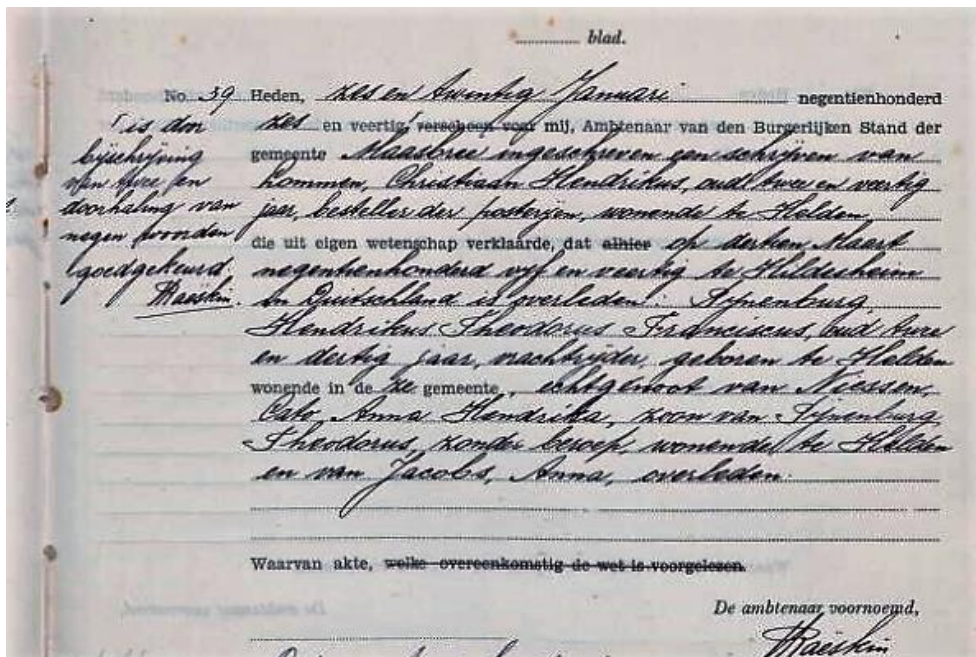 blad.
No. 39 Heden, zes en twintig Januari negentienhonderd
zes en veertig, verscheen voor mij, Ambtenaar van den Burgerlijken Stand der
gemeente Maasbree ingeschreven een schrijven van
Hommen, Christiaan Hendrikus, oud twee en veertig
jaar, besteller der posterijen, wonende te Helden,
die uit eigen wetenschap verklaarde, dat alhier op dertien Maart
negentienhonderd vijf en veertig te Hildesheim
in Duitschland is overleden: Tijnenburg,
Hendrikus Theodorus Franciscus, oud twee
en dertig jaar, vrachtrijder, geboren te Helden
wonende in deze gemeente, echtgenoot van Niessen,
Cato Anna Hendrika, zoon van Tijnenburg
Theodorus, zonder beroep, wonende te Helden
en van Jacobs, Anna, overleden.
is door
bijschrijving
van twee en
doorhaling van
negen woorden
goedgekeurd.
Raëskin.
Waarvan akte, welke overeenkomstig de wet is voorgelezen.
De ambtenaar voornoemd,
Raëskin